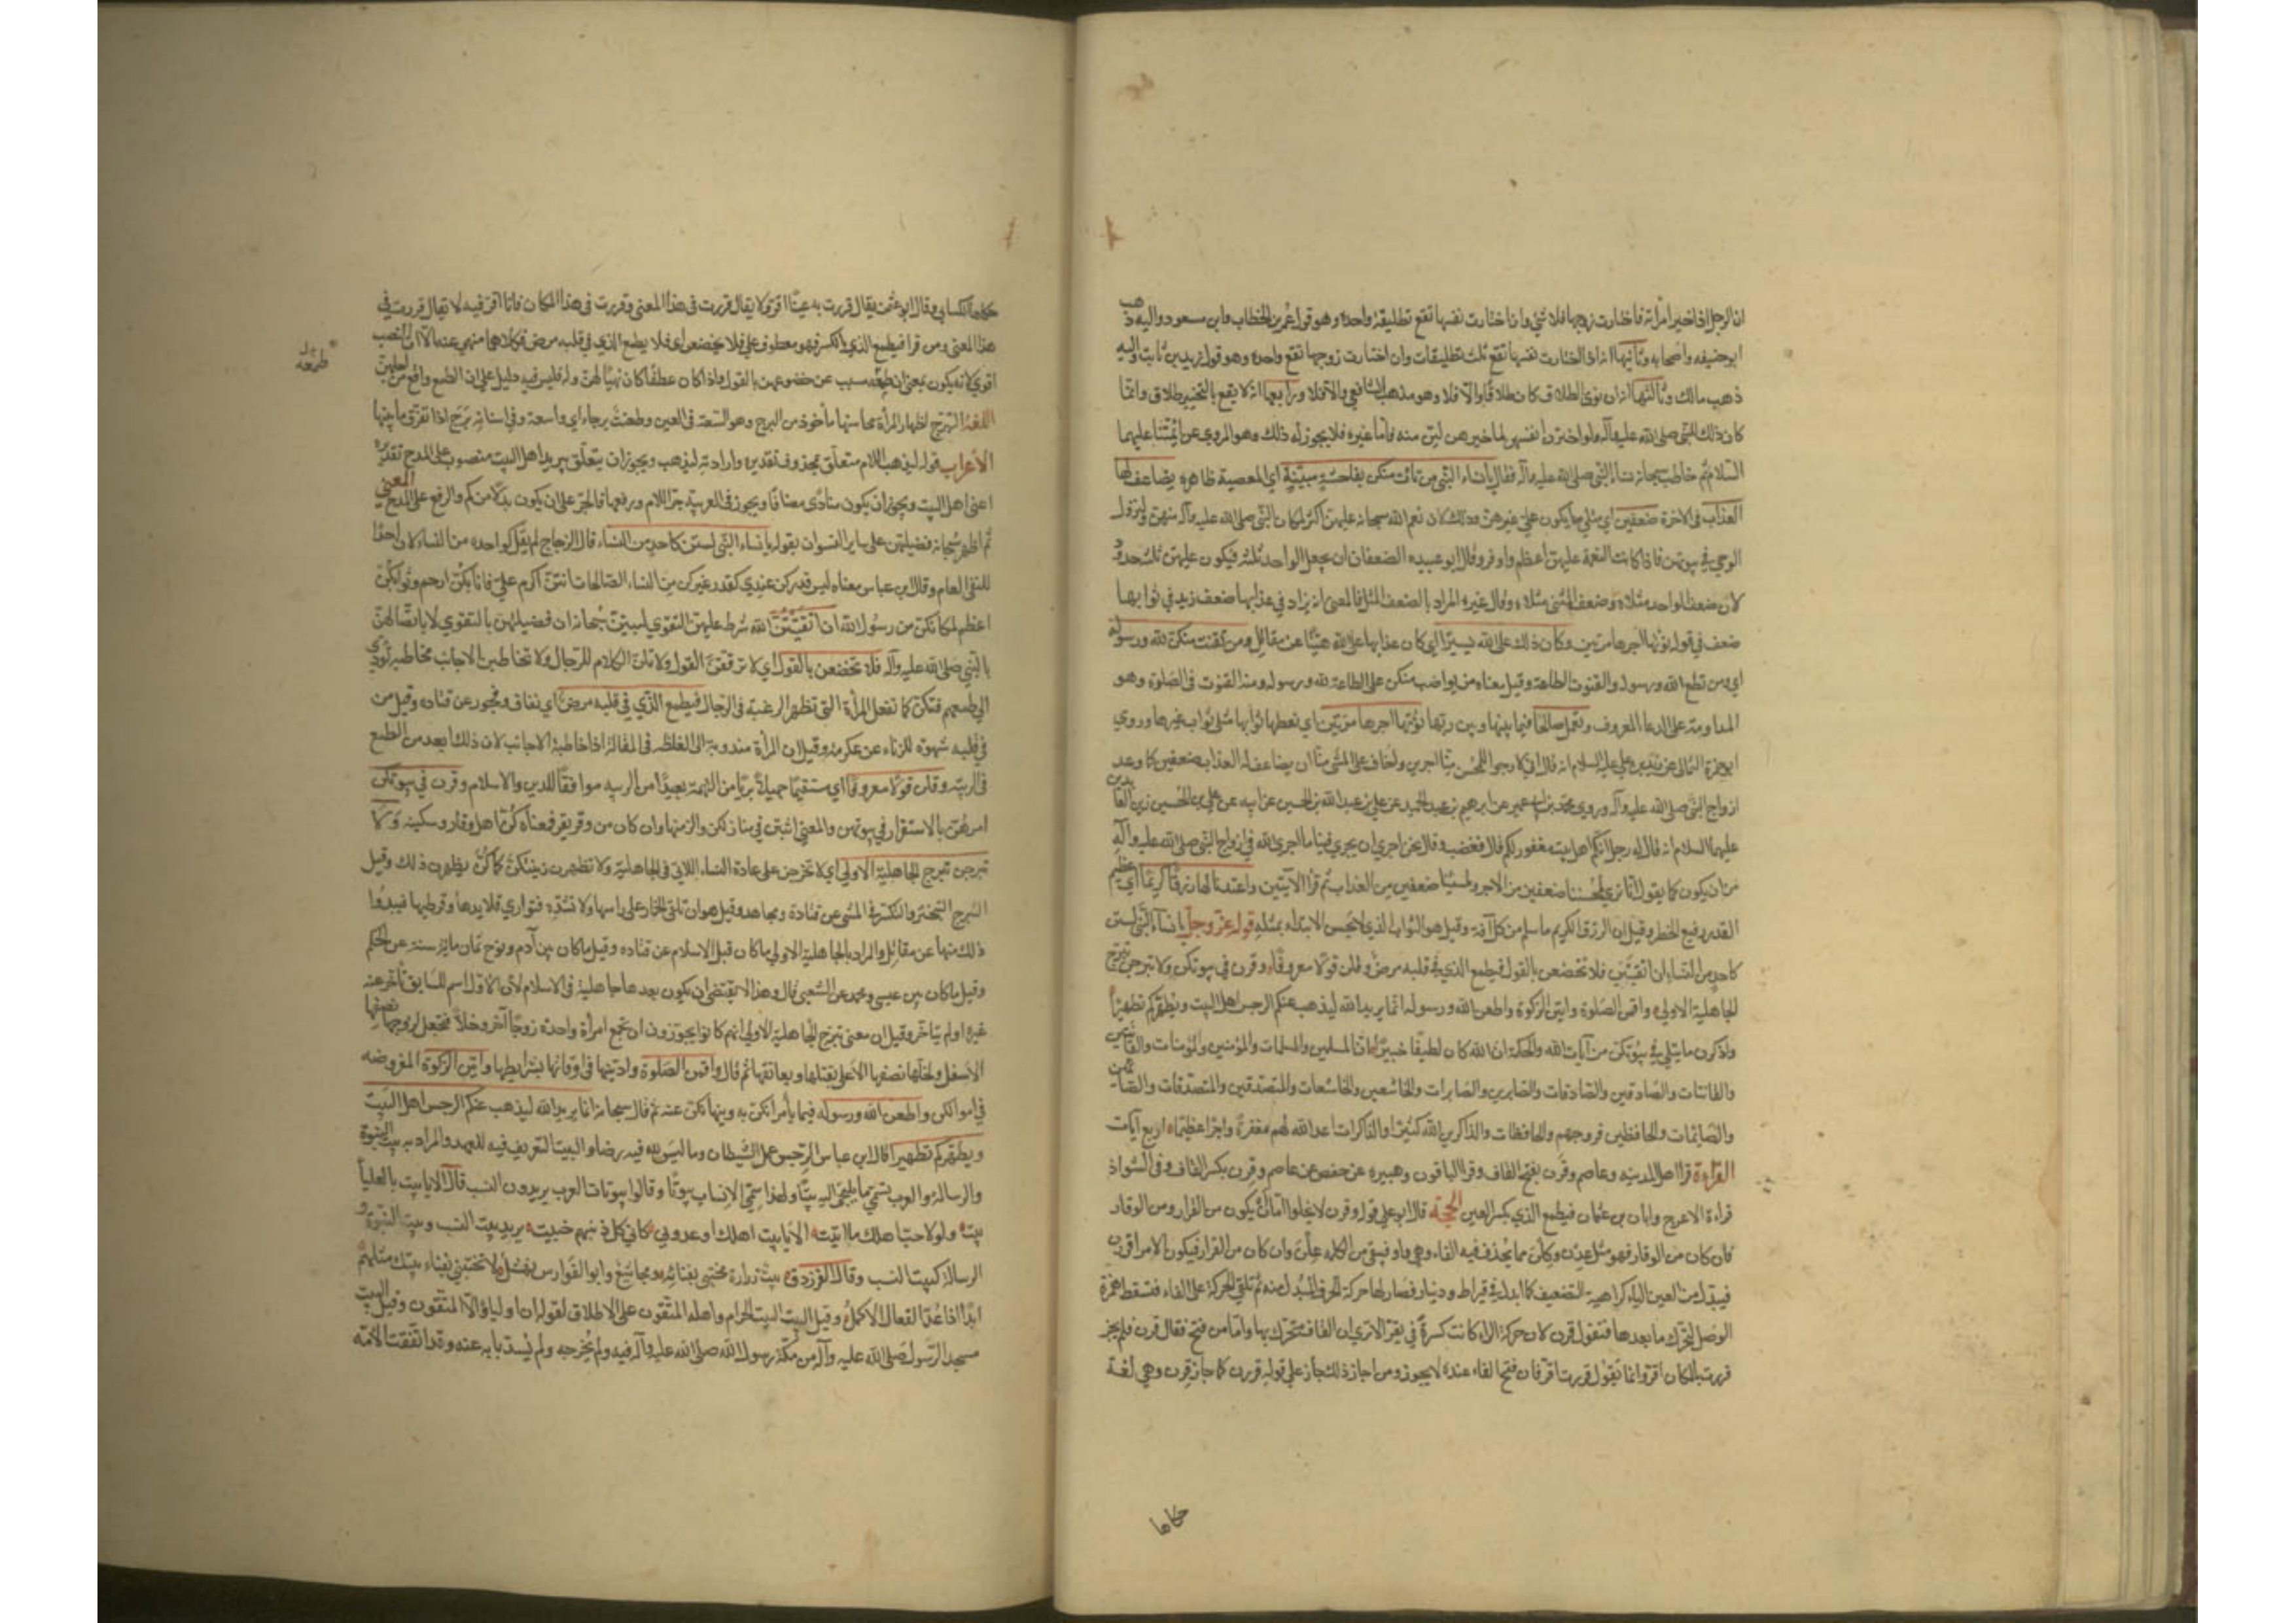 ان الرجل اذا خير امرأته فاختارت زوجها فلا شئ واذا اختارت نفسها تقع تطليقة واحدة وهو قول عمر بن الخطاب وابن مسعود واليه ذهب
ابو حنيفه واصحابه وثانيها انه اذا اختارت نفسها تقع ثلث تطليقات وان اختارت زوجها تقع واحدة وهو قول زيد بن ثابت واليه
ذهب مالك وثالثها انه ان نوى الطلاق كان طلاقا والا فلا وهو مذهب الشافعي ورابعها انه لا يقع بالتخيير طلاق وانما
كان ذلك للنبي صلى الله عليه وآله ولو اخترن انفسهن لما خيرهن لبن منه فاما غيره فلا يجوز له ذلك وهو المروي عن ائمتنا عليهم
السلام ثم خاطب سبحانه نساء النبي صلى الله عليه وآله فقال يا نساء النبي من يأت منكن بفاحشة مبينة اي بمعصية ظاهره يضاعف لها
العذاب في الاخرة ضعفين اي مثلي ما يكون على غيرهن وذلك لان نعم الله سبحانه عليهن اكثر لمكان النبي صلى الله عليه وآله منهن ولنزول
الوحي في بيوتهن فاذا كانت النعمة عليهن اعظم واوفر وقال ابو عبيده الضعفان ان يجعل الواحد ثلثه فيكون عليهن ثلثه حدود
لان ضعف الواحد مثلاه وضعف الشئ مثلاه وقال غيره المراد بالضعف المثل فالمعنى انه يزاد في عذابها ضعف كما زيد في ثوابها
ضعف في قوله نؤتها اجرها مرتين وكان ذلك على الله يسيرا اي كان عذابها على الله هينا عن مقاتل ومن يقنت منكن لله ورسوله
اي ومن تطع الله ورسوله والقنوت الطاعة وقيل معناه من يواضب منكن على الطاعة لله ورسوله ومنه القنوت في الصلوة وهو
المداومة على الدعا المعروف وتعمل صالحا فيما بينها وبين ربها نؤتها اجرها مرتين اي نعطها ثوابها مثلي ثواب غيرها وروى
ابو حمزة الثمالي عن زيد بن علي عليه السلام انه قال اني لارجو للمحسن منا اجرين واخاف على المسئ منا ان يضاعف له العذاب ضعفين كما وعد
ازواج النبي صلى الله عليه وآله وروى محمد بن ابي عمير عن ابرهيم بن عبد الحميد عن علي بن عبد الله بن الحسين عن ابيه عن علي بن الحسين زين العابدين
عليهما السلام انه قال له رجل انكم اهل بيت مغفور لكم قال فغضب وقال نحن احرى ان يجري فينا ما اجرى الله في ازواج النبي صلى الله عليه وآله
من ان يكون كما يقول انا نرى لمحسننا ضعفين من الاجر ولمسيئنا ضعفين من العذاب ثم قرأ الآيتين واعتدنا لها رزقا كريما اي عظيم
القدر رفيع الخطر وقيل ان الرزق الكريم ما سلم من كل آفة وقيل هو الثواب الذي لا يحسن الابتداء بمثله قوله عز وجل يا نساء النبي لستن
كاحد من النساء ان اتقيتن فلا تخضعن بالقول فيطمع الذي في قلبه مرض وقلن قولا معروفا وقرن في بيوتكن ولا تبرجن تبرج
الجاهلية الاولى واقمن الصلوة وآتين الزكوة واطعن الله ورسوله انما يريد الله ليذهب عنكم الرجس اهل البيت ويطهركم تطهيرا
واذكرن ما يتلى في بيوتكن من آيات الله والحكمة ان الله كان لطيفا خبيرا ان المسلمين والمسلمات والمؤمنين والمؤمنات والقانتين
والقانتات والصادقين والصادقات والصابرين والصابرات والخاشعين والخاشعات والمتصدقين والمتصدقات والصائمين
والصايمات والحافظين فروجهم والحافظات والذاكرين الله كثيرا والذاكرات اعد الله لهم مغفرة واجرا عظيما اربع آيات
القراءة قرأ اهل المدينه وعاصم وقرن بفتح القاف وقرأ الباقون وهبيرة عن حفص عن عاصم وقرن بكسر القاف وفي الشواذ
قراءة الاعرج وابان بن عثمان فيطمع الذي بكسر العين الحجة قال ابو علي قوله وقرن لا يخلوا اما ان يكون من القرار ومن الوقار
فان كان من الوقار فهو مثل عدن وكلن مما يحذف فيه الفاء وهي واو فيبقى من الكلمه علن وان كان من القرار فيكون الامر اقررن
فيبدل من العين الياء كراهية التضعيف كما ابدل في قيراط ودينار فصار لها حركة الحرف المبدل منه ثم تلقى الحركة على الفاء فتسقط همزة
الوصل لتحرك ما بعدها فتقول قرن لان حركة الراء كانت كسرة في يقر الا ترى ان القاف متحرك بها واما من فتح فقال قرن فلم يجز
قررت بالمكان اقر وانما تقول قررت اقر فان فتح الفاء عنده لا يجوز ومن اجاز ذلك جاز على قوله قررن كما جاز قرن وهي لغة
حكاها
حكاها الكسائي وقال ابو عثمن يقال قررت به عينا اقر ولا يقال قررت في هذا المعنى وقررت في هذا المكان فانا اقر فيه لا تقال قررت في
هذا المعنى ومن قرأ فيطمع الذي بالكسر فهو معطوف على فلا يخضعن اي فلا يطمع الذي في قلبه مرض فكلاهما منهي عنه الا ان النصب
اقوى لانه يكون بمعنى ان طمعه سبب عن خضوعهن بالقول واذا كان عطفا كان نهيا لهن وله فليس فيه دليل على ان الطمع واقع من اجلهن
اللغة التبرج اظهار المرأة محاسنها مأخوذ من البرج وهو السعة في العين وطعنة برجاء اي واسعة وفي اسنانه برج اذا تفرق ما بينها
الأعراب قوله ليذهب اللام متعلق بمحذوف تقديره وارادته ليذهب ويجوز ان يتعلق بيريد اهل البيت منصوب على المدح تقديره
اعني اهل البيت ويجوز ان يكون منادى مضافا ويجوز في العربية جر اللام ورفعها فالجر على ان يكون بدلا من كم والرفع على المدح المعنى
ثم اظهر سبحانه فضيلتهن على ساير النسوان بقوله يا نساء النبي لستن كاحد من النساء قال الزجاج لم يقل كواحده من النساء لان احدا
للنفي العام وقال ابن عباس معناه ليس قدركن عندي كقدر غيركن من النساء الصالحات انتن اكرم علي فانا بكن ارحم وثوابكن
اعظم لمكانكن من رسول الله ان اتقيتن الله شرط عليهن التقوى ليبين سبحانه ان فضيلتهن بالتقوى لا باتصالهن
بالنبي صلى الله عليه وآله فلا تخضعن بالقول اي لا ترققن القول ولا تلن الكلام للرجال ولا تخاطبن الاجانب مخاطبة تؤدي
الى طمعهم فتكن كما تفعل المرأة التي تظهر الرغبة في الرجال فيطمع الذي في قلبه مرض اي نفاق وفجور عن قتاده وقيل من
في قلبه شهوة للزناء عن عكرمه وقيل ان المرأة مندوبة الى الغلظة في المقالة اذا خاطبة الاجانب لان ذلك ابعد من الطمع
في الريبة وقلن قولا معروفا اي مستقيما جميلا بريا من التهمة بعيدا من الريبه موافقا للدين والاسلام وقرن في بيوتكن
امرهن بالاستقرار في بيوتهن والمعنى اثبتن في منازلكن والزمنها وان كان من وقر يقر فمعناه كن اهل وقار وسكينه ولا
تبرجن تبرج الجاهلية الاولى اي لا تخرجن على عادة النساء اللاتي في الجاهلية ولا تظهرن زينتكن كما كن يظهرن ذلك وقيل
التبرج التبختر والتكسر في المشي عن قتادة ومجاهد وقيل هو ان تلقي الخمار على راسها ولا تشده فتواري قلايدها وقرطيها فيبدوا
ذلك منها عن مقاتل والمراد بالجاهلية الاولى ما كان قبل الاسلام عن قتاده وقيل ما كان بين آدم ونوح ثمان ماية سنة عن الحكم
وقيل ما كان بين عيسى ومحمد عن الشعبي قال وهذا لا يقتضي ان يكون بعدها جاهلية في الاسلام لأن الاول اسم للسابق تأخر عنه
غيره او لم يتأخر وقيل ان معنى تبرج الجاهلية الاولى انهم كانوا يجوزون ان تجمع امرأة واحدة زوجا آخر وخلا فتجعل لزوجها نصفها
الاسفل ولخلها نصفها الاعلى يقبلها ويعانقها ثم قال واقمن الصلوة وادينها في اوقاتها بشرايطها وآتين الزكوة المفروضه
في اموالكن واطعن الله ورسوله فيما يأمرانكن به وينهانكن عنه ثم قال سبحانه انما يريد الله ليذهب عنكم الرجس اهل البيت
ويطهركم تطهيرا قال ابن عباس الرجس عمل الشيطان وما ليس لله فيه رضا والبيت التعريف فيه للعهد والمراد به بيت النبوة
والرسالة والعرب تسمي ما يلتجى اليه بيتا ولهذا سمي الانساب بيوتا وقالوا بيوتات العرب يريدون النسب قال الا يا بيت بالعليا
بيت ولولا حب اهلك ما اتيت الا يا بيت اهلك اوعدوني كاني كل ذنبهم جنيت يريد بيت النسب وبيت النبوة و
الرسالة كبيت النسب وقال الفرزدق بيت زرارة محتبي بفنائه ومجاشع وابو الفوارس نهشل لا يحتبي بفناء بيتك مثلهم
ابدا اذا عد الفعال الاكمل وقيل البيت البيت الحرام واهله المتقون على الاطلاق لقوله ان اولياؤه الا المتقون وقيل البيت
مسجد الرسول صلى الله عليه وآله من مكنه رسول الله صلى الله عليه وآله فيه ولم يخرجه ولم يسد بابه عنه وقد اتفقت الامه